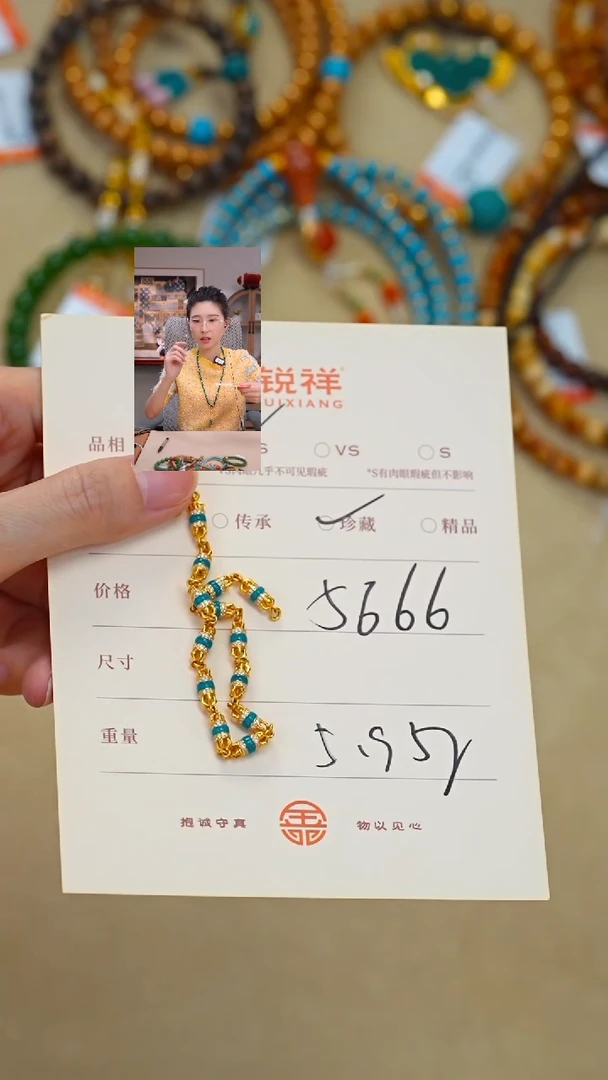 锐祥
UIXIANG
品相 S VS S
几乎不可见瑕疵 *S有肉眼瑕疵但不影响
传承 珍藏 精品
价格 5666
尺寸
重量 5.95g
抱诚守真 物以见心